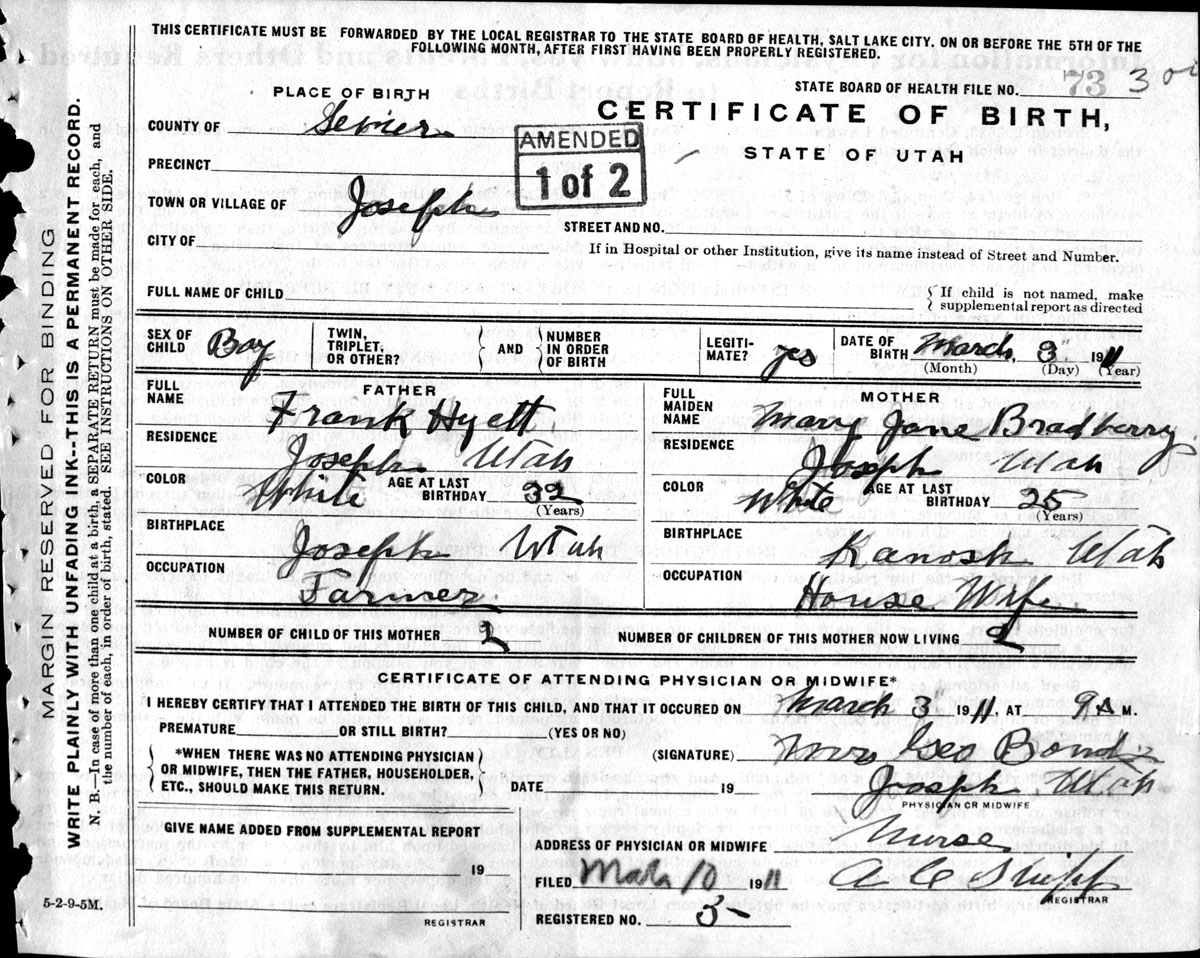 THIS CERTIFICATE MUST BE FORWARDED BY THE LOCAL REGISTRAR TO THE STATE BOARD OF HEALTH, SALT LAKE CITY. ON OR BEFORE THE 5TH OF THE
FOLLOWING MONTH, AFTER FIRST HAVING BEEN PROPERLY REGISTERED.
STATE BOARD OF HEALTH FILE NO. 73
PLACE OF BIRTH
CERTIFICATE OF BIRTH,
STATE OF UTAH
COUNTY OF Sevier
AMENDED
1 of 2
PRECINCT
TOWN OR VILLAGE OF Joseph
STREET AND NO.
CITY OF
If in Hospital or other Institution, give its name instead of Street and Number.
FULL NAME OF CHILD
{ If child is not named, make
supplemental report as directed
SEX OF CHILD Boy
TWIN, TRIPLET, OR OTHER?
{ AND } NUMBER IN ORDER OF BIRTH
LEGITI-MATE? yes
DATE OF BIRTH March, 3" 1911
(Month) (Day) (Year)
FATHER
FULL NAME Frank Hyett
RESIDENCE Joseph Utah
COLOR White AGE AT LAST BIRTHDAY 32
(Years)
BIRTHPLACE Joseph Utah
OCCUPATION Farmer
MOTHER
FULL MAIDEN NAME Mary Jane Bradberry
RESIDENCE Joseph Utah
COLOR White AGE AT LAST BIRTHDAY 25
(Years)
BIRTHPLACE Kanosh Utah
OCCUPATION House Wife
NUMBER OF CHILD OF THIS MOTHER 2
NUMBER OF CHILDREN OF THIS MOTHER NOW LIVING 2
CERTIFICATE OF ATTENDING PHYSICIAN OR MIDWIFE*
I HEREBY CERTIFY THAT I ATTENDED THE BIRTH OF THIS CHILD, AND THAT IT OCCURED ON March 3" 1911, AT 9 A M.
PREMATURE OR STILL BIRTH? (YES OR NO)
(SIGNATURE) Geo Bond
{ *WHEN THERE WAS NO ATTENDING PHYSICIAN
OR MIDWIFE, THEN THE FATHER, HOUSEHOLDER,
ETC., SHOULD MAKE THIS RETURN. }
DATE 19 Joseph Utah
PHYSICIAN OR MIDWIFE
GIVE NAME ADDED FROM SUPPLEMENTAL REPORT
19
REGISTRAR
ADDRESS OF PHYSICIAN OR MIDWIFE Nurse
FILED Mar 10 1911
REGISTRAR
REGISTERED NO. 5
5-2-9-5M.
MARGIN RESERVED FOR BINDING
WRITE PLAINLY WITH UNFADING INK--THIS IS A PERMANENT RECORD.
N. B.—In case of more than one child at a birth, a SEPARATE RETURN must be made for each, and
the number of each, in order of birth, stated. SEE INSTRUCTIONS ON OTHER SIDE.